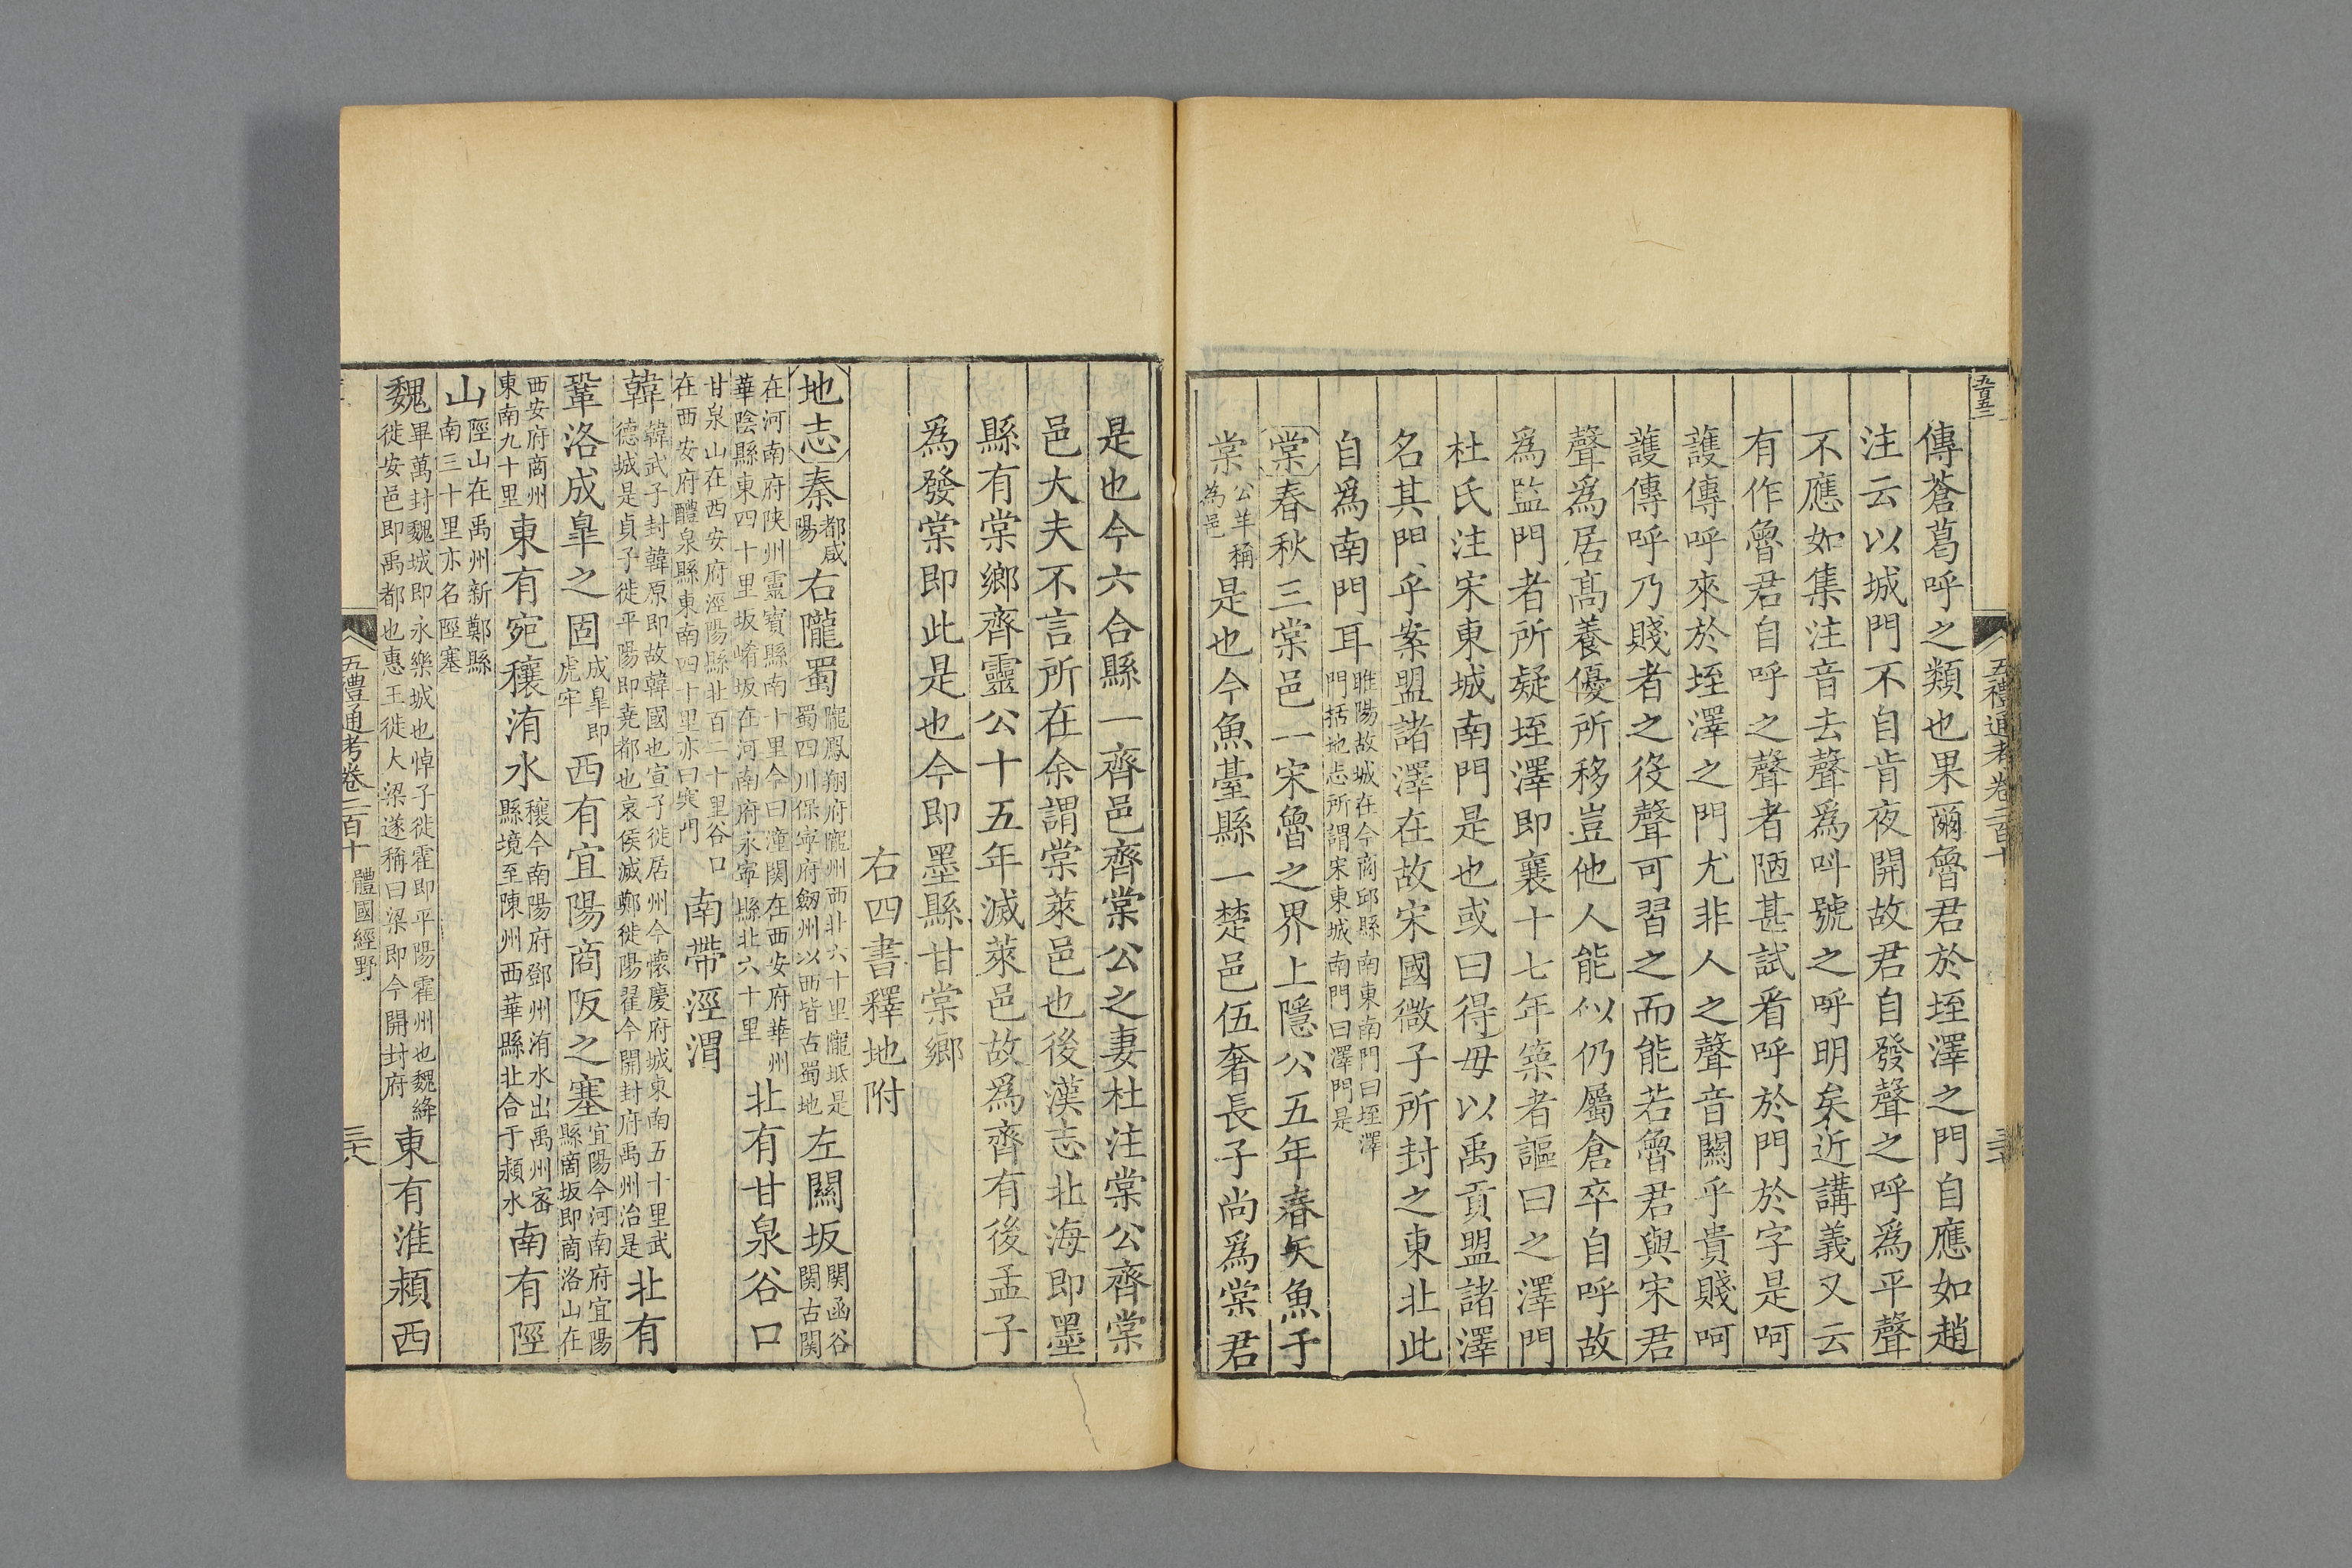 五禮通考卷二百十
傳蒼葛呼之類也果爾魯君於垤澤之門自應如趙
注云以城門不自肯夜開故君自發聲之呼爲平聲
不應如集注音去聲爲叫號之呼明矣近講義又云
有作魯君自呼之聲者陋甚試看呼於門於字是呵
護傳呼來於垤澤之門尤非人之聲音關乎貴賤呵
護傳呼乃賤者之役聲可習之而能若魯君與宋君
聲爲居高養優所移豈他人能似仍屬倉卒自呼故
爲監門者所疑垤澤即襄十七年築者謳曰之澤門
杜氏注宋東城南門是也或曰得毋以禹貢盟諸澤
名其門乎案盟諸澤在故宋國微子所封之東北此
自爲南門耳睢陽故城在今商邱縣南東南門曰垤澤門括地志所謂宋東城南門曰澤門是
棠春秋三棠邑一宋魯之界上隱公五年春矢魚于
棠公羊稱為邑是也今魚臺縣一楚邑伍奢長子尚爲棠君
是也今六合縣一齊邑齊棠公之妻杜注棠公齊棠
邑大夫不言所在余謂棠萊邑也後漢志北海即墨
縣有棠鄉齊靈公十五年滅萊邑故爲齊有後孟子
爲發棠即此是也今即墨縣甘棠鄉
右四書釋地附
地志秦都咸陽右隴蜀隴鳳翔府隴州西北六十里隴坻是蜀四川保寧府劒州以西皆古蜀地左關坂関函谷関古関
在河南府陝州靈寶縣南十里今曰潼関在西安府華州華陰縣東四十里坂崤坂在河南府永寧縣北六十里北有甘泉谷口
甘泉山在西安府涇陽縣北百二十里谷口在西安府醴泉縣東南四十里亦曰寒門南帶涇渭
韓韓武子封韓原即故韓國也宣子徙居州今懷慶府城東南五十里武德城是貞子徙平陽即堯都也哀侯滅鄭徙陽翟今開封府禹州治是北有
鞏洛成皐之固成皐即虎牢西有宜陽商阪之塞宜陽今河南府宜陽縣商坂即商洛山在
西安府商州東南九十里東有宛穰洧水穰今南陽府鄧州洧水出禹州密縣境至陳州西華縣北合于潁水南有陘
山陘山在禹州新鄭縣南三十里亦名陘塞
魏畢萬封魏城即永樂城也悼子徙霍即平陽霍州也魏絳徙安邑即禹都也惠王徙大梁遂稱曰梁即今開封府東有淮潁西
五禮通考卷二百十 體國經野 三六